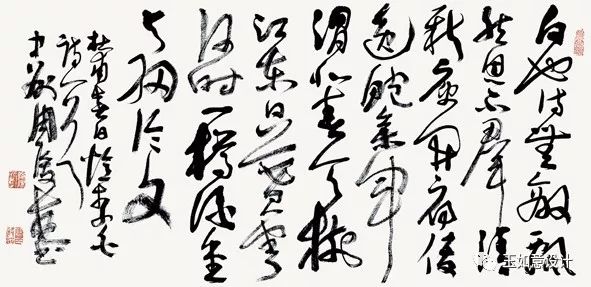 白也诗無敵飘
然思不群清
新庾開府俊
逸鲍参军
渭北春天樹
江东日暮雲
何时一樽酒重
与细论文
杜甫春日憶李白
玉如意设计